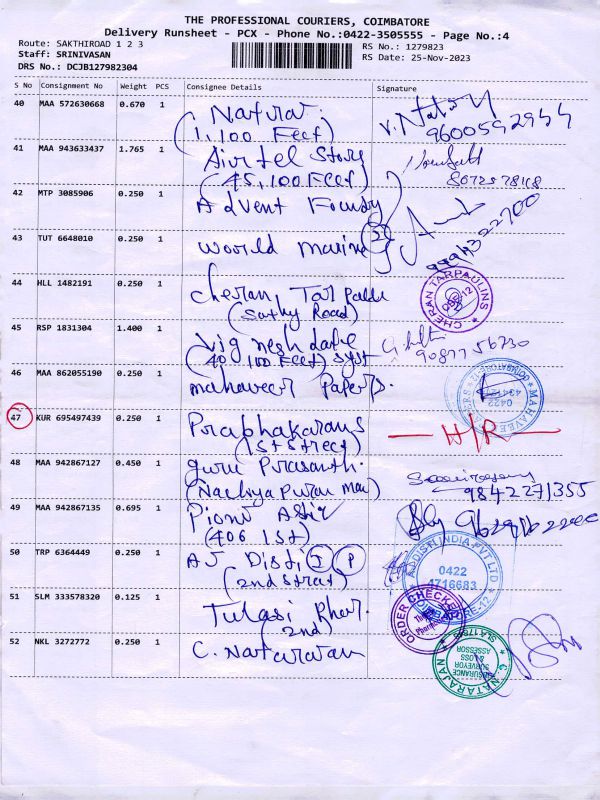 THE PROFESSIONAL COURIERS, COIMBATORE
Delivery Runsheet - PCX - Phone No.:0422-3505555 - Page No.:4
Route: SAKTHIROAD 1 2 3
RS No.: 1279823
Staff: SRINIVASAN
RS Date: 25-Nov-2023
DRS No.: DCJB127982304
S No Consignment No Weight PCS Consignee Details Signature
40 MAA 572630668 0.670 1 Natural
(1,100 Feet) 9600592954
41 MAA 943633437 1.765 1 Airtel Story
(45,100 Feet)
42 MTP 3085906 0.250 1 Advent Foundry
43 TUT 6648010 0.250 1 World Marine
44 HLL 1482191 0.250 1 Cheran Tar Paulin CHERAN TARPAULINS
(Sathy Road)
45 RSP 1831304 1.400 1 Vignesh
(40 100 Feet) Syst 9087756730
46 MAA 862055190 0.250 1 Mahaveer Papers. MAHAVEER
47 KUR 695497439 0.250 1 Prabhakarans H/R
(1st Street)
48 MAA 942867127 0.450 1 Guru Prasanth.
9842271355
49 MAA 942867135 0.695 1
(406 1st)
50 TRP 6364449 0.250 1 AJ Disti P ADDISTI INDIA PVT LTD
0422
4716683
(2nd Street)
51 SLM 333578320 0.125 1 Tulasi Phar. ORDER CHECKED
(2nd)
52 NKL 3272772 0.250 1 C. Natarajan C. NATARAJAN
INSURANCE
SURVEYOR
& LOSS
ASSESSOR